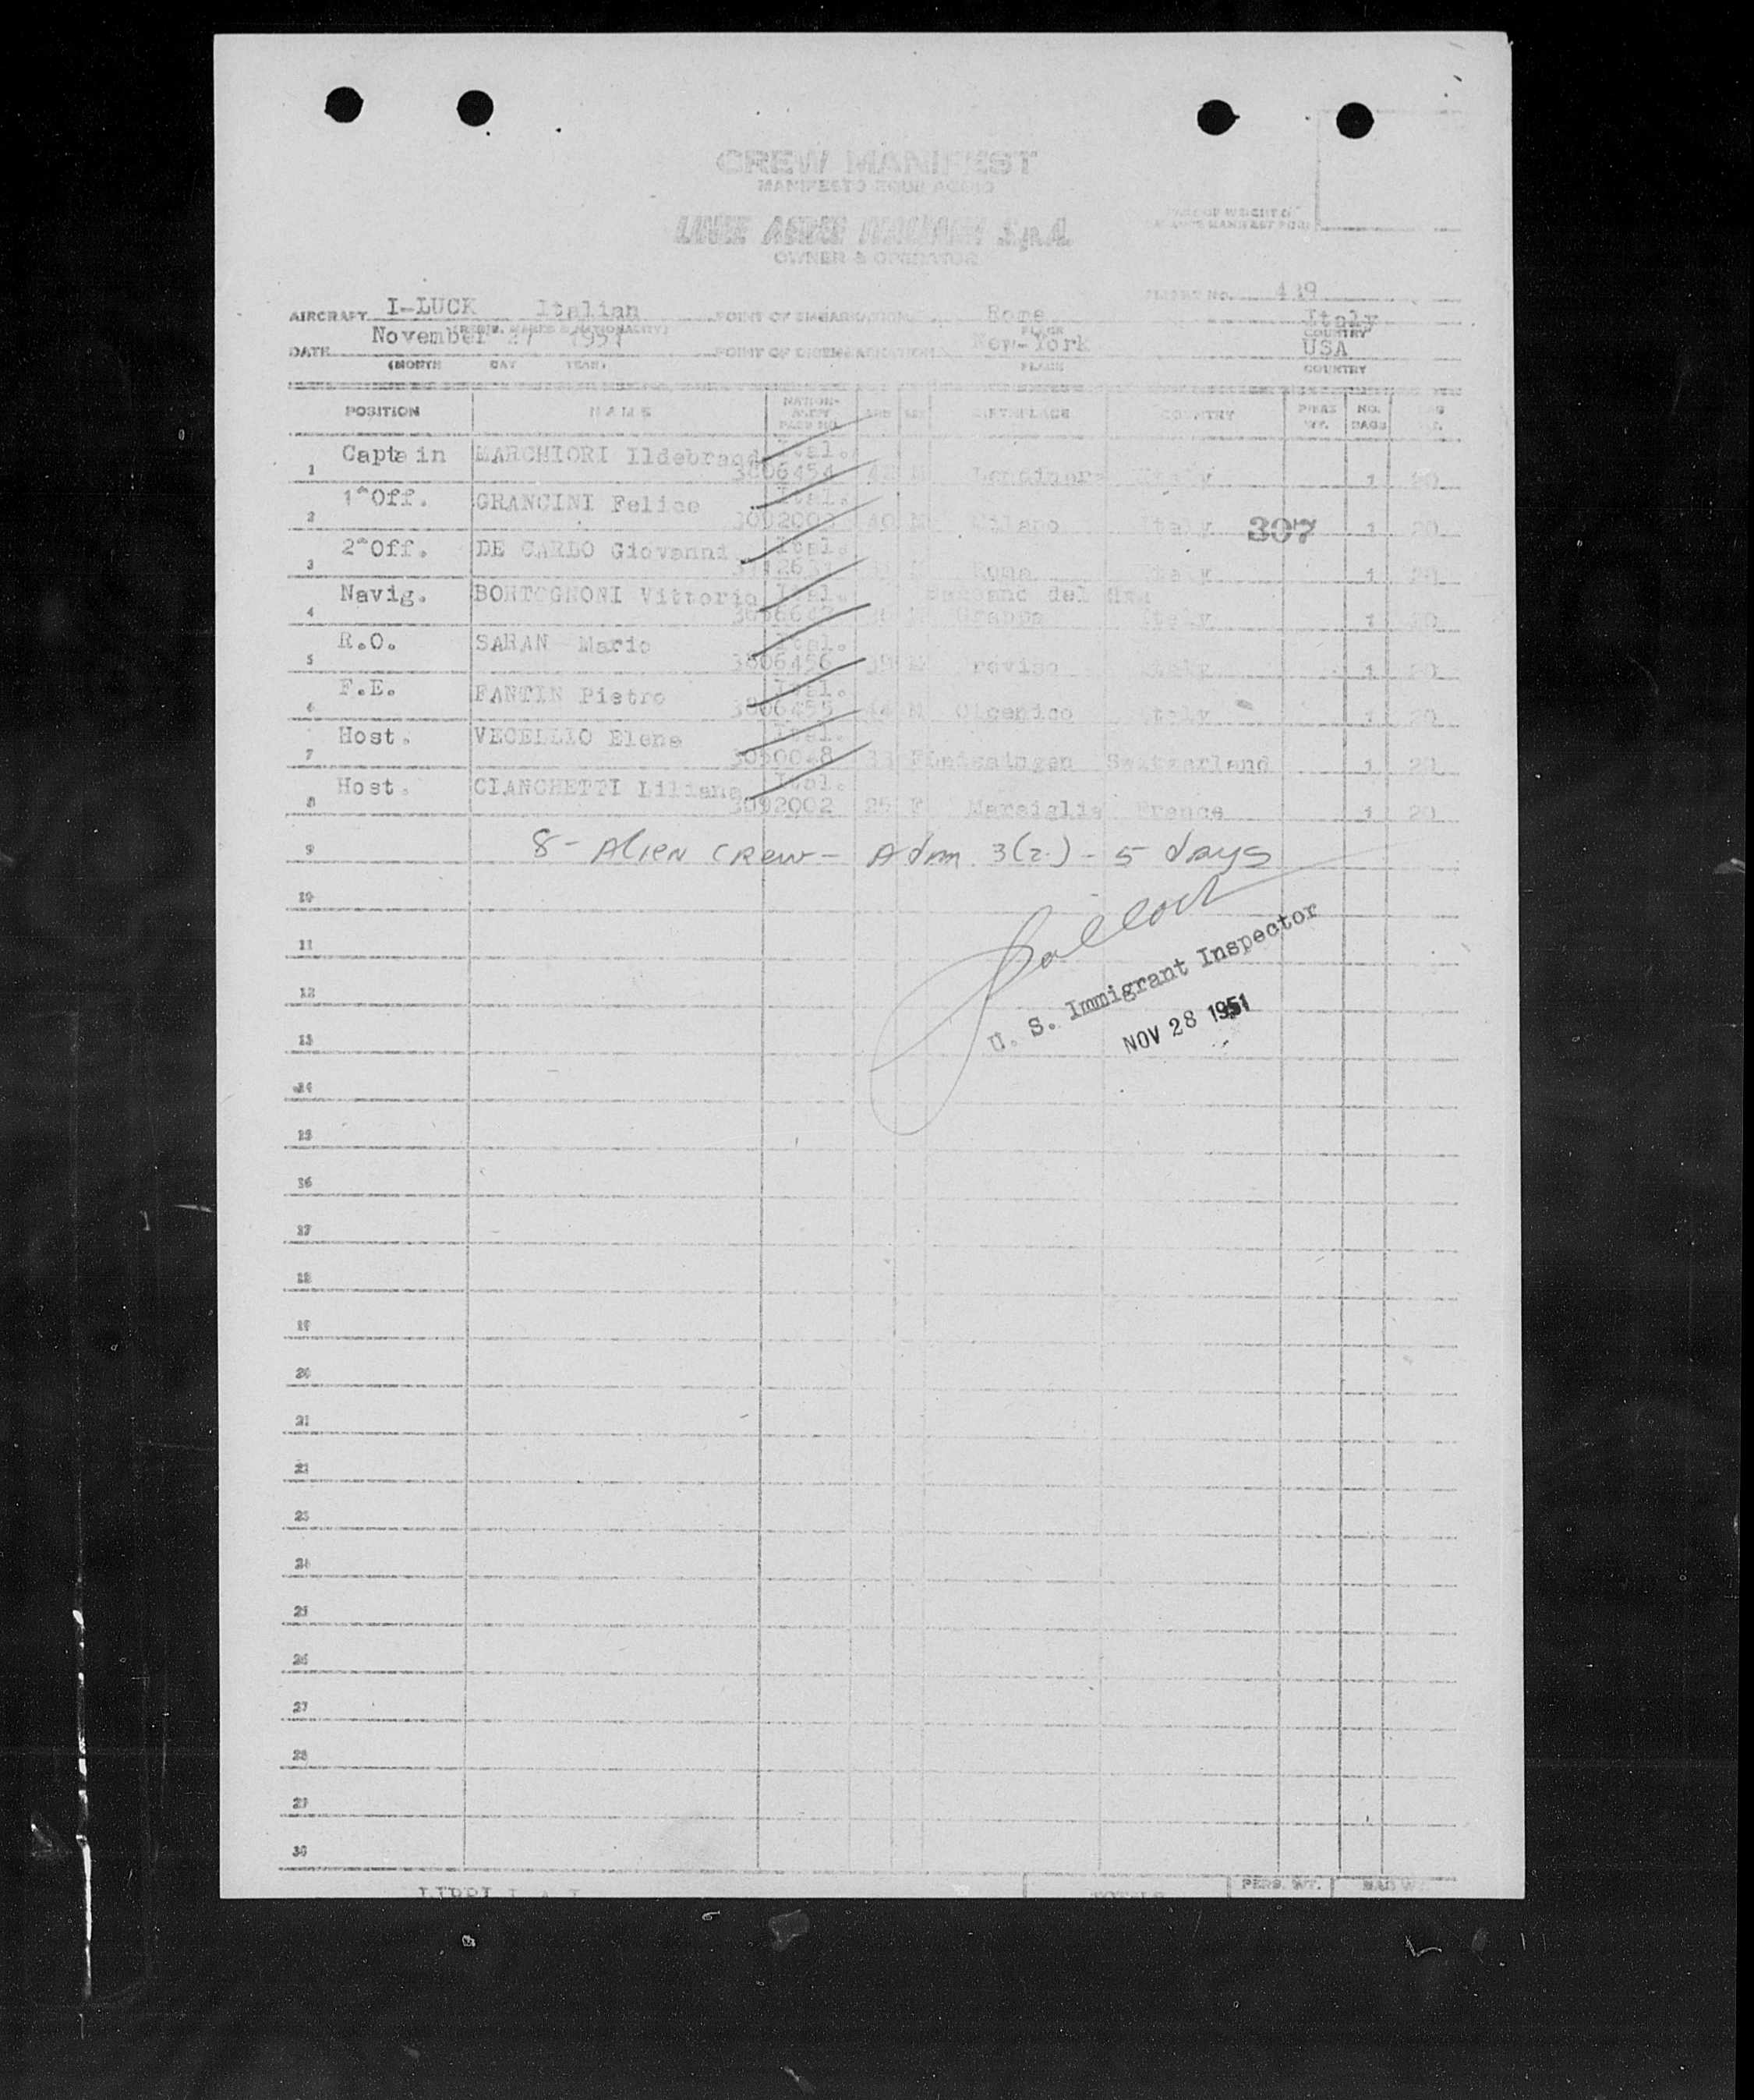 CREW MANIFEST
MANIFESTO EQUIPAGGIO
LINEE AEREE ITALIANE S.p.A.
OWNER & OPERATOR
FLIGHT NO. 439
AIRCRAFT I-LUCK Italian POINT OF EMBARKATION Rome Italy
(REGIS. MARKS & NATIONALITY) PLACE COUNTRY
DATE November 27 1951 POINT OF DISEMBARKATION New-York USA
(MONTH DAY YEAR) PLACE COUNTRY
POSITION NAME NATION-ALITY PASS NO. AGE SEX BIRTHPLACE COUNTRY PERS WT. NO. BAGS BAG WT.
1 Captain MARCHIORI Ildebrando Ital. 3806454 42 M Italy 1 20
2 1^Off. GRANCINI Felice Ital. 40 M Milano Italy 307 1 20
3 2^Off. DE CARLO Giovanni Ital. Roma Italy 1 20
4 Navig. BORTOGNONI Vittorio Ital. del Grappa Italy 1 20
5 R.O. SARAN Mario Ital. 3806456 M Treviso Italy 1 20
6 F.E. FANTIN Pietro Ital. 3806455 44 M Italy 1 20
7 Host. VECELLIO Elena Ital. F Switzerland 1 20
8 Host. CIANCHETTI Liliana Ital. 3092002 25 F Marsiglia France 1 20
9 8 - Alien Crew - Adm. 3(2) - 5 days
10
11
U. S. Immigrant Inspector
12
NOV 28 1951
13
14
15
16
17
18
19
20
21
22
23
24
25
26
27
28
29
30
TOTALS PERS. WT. BAG WT.